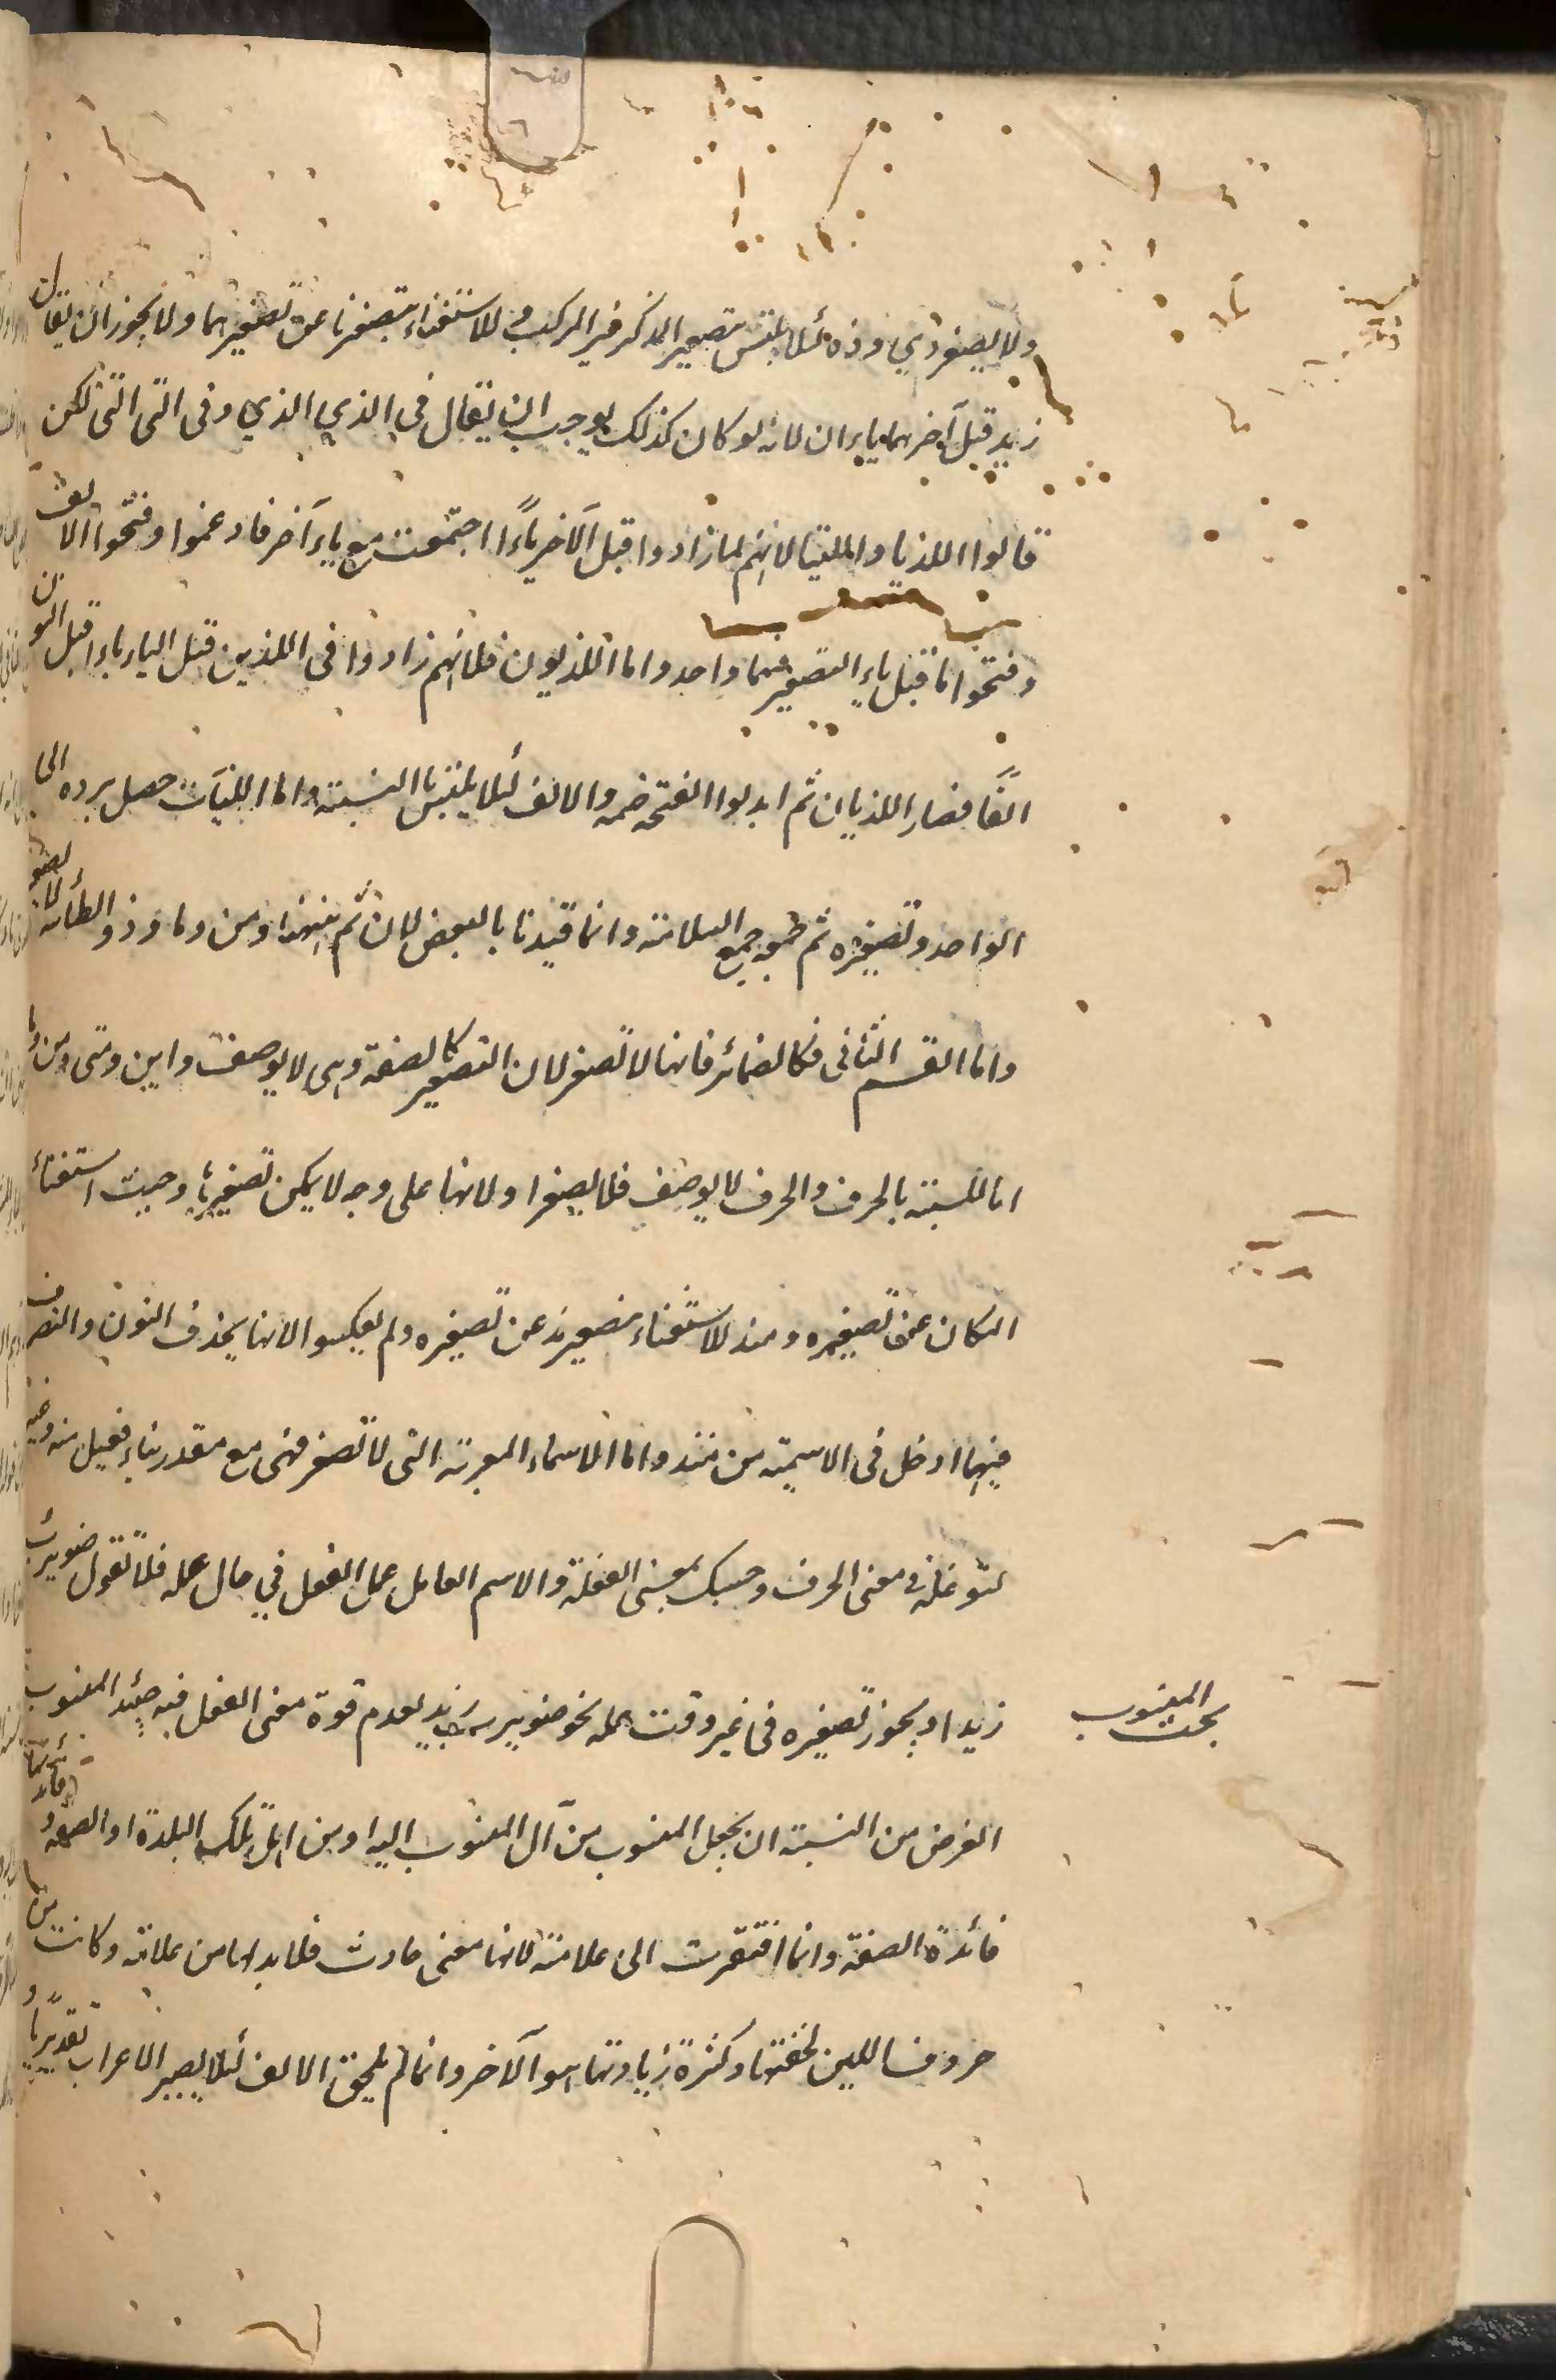 ولا يصغر ذي وذه لئلا يلتبس بتصغير المذكر غير المركب وللاستغناء بتصغير تا عن تصغيرهما ولا يجوز ان يقال
زيد قبل آخرهما ياءان لانه لو كان كذلك لوجب ان يقال في الذي الذي وفى التى التى لكن
قالوا اللذيا واللتيا لانهم لما زادوا قبل الآخر ياءً اجتمعت مع ياء آخر فادغموا وفتحوا الالف
وفتحوا ما قبل ياء التصغير فهما واحد واما اللذيون فلانهم زادوا فى اللذين قبل الياء ياء قبل النون
الفًا فصار اللذيان ثم ابدلوا الفتحة ضمه والالف لئلا يلتبس بالتثنية واما اللتيات حصل برده الى
الواحد وتصغيره ثم جمعه جمع السلامة وانما قيدنا بالبعض لان ثم منها ومن وما وذو الطائية لا تصغر
واما القسم الثانى فكالضمائر فانها لا تصغر لان التصغير كالصفة وهى لا يوصف واين ومتى ومن وما
اما للشبه بالحرف والحرف لا يوصف فلا يصغر اولانها على وجه لا يمكن تصغيرها وحيث استغناء
المكان عن تصغيره ومنذ للاستغناء بتصغير مذ عن تصغيره ولم يعكسوا لانها بحذف النون والتصرف
فيها ادخل فى الاسمية من منذ واما الاسماء المعربة التى لا تصغر فهى مع متعذر بناء فعيل منه وغير
لتوغله فى معنى الحرف وحسبك بمعنى الفعلة والاسم العامل عمل الفعل في حال عمله فلا تقول ضويرب
زيدا ويجوز تصغيره فى غير وقت عمله نحو ضويرب زيد لعدم قوة معنى الفعل فيه حينئذ المنسوب
بحث المنسوب
الغرض من النسبة ان يجعل المنسوب من آل المنسوب اليه او من اهل تلك البلدة او الصنعة وفائدتها
فائدة الصفة وانما افتقرت الى علامة لانها معنى حادث فلا بد لها من علامة وكانت من
حروف اللين لخفتها وكثرة زيادتها هو الآخر وانما لم يلحق الالف لئلا يصير الاعراب تقديريا و